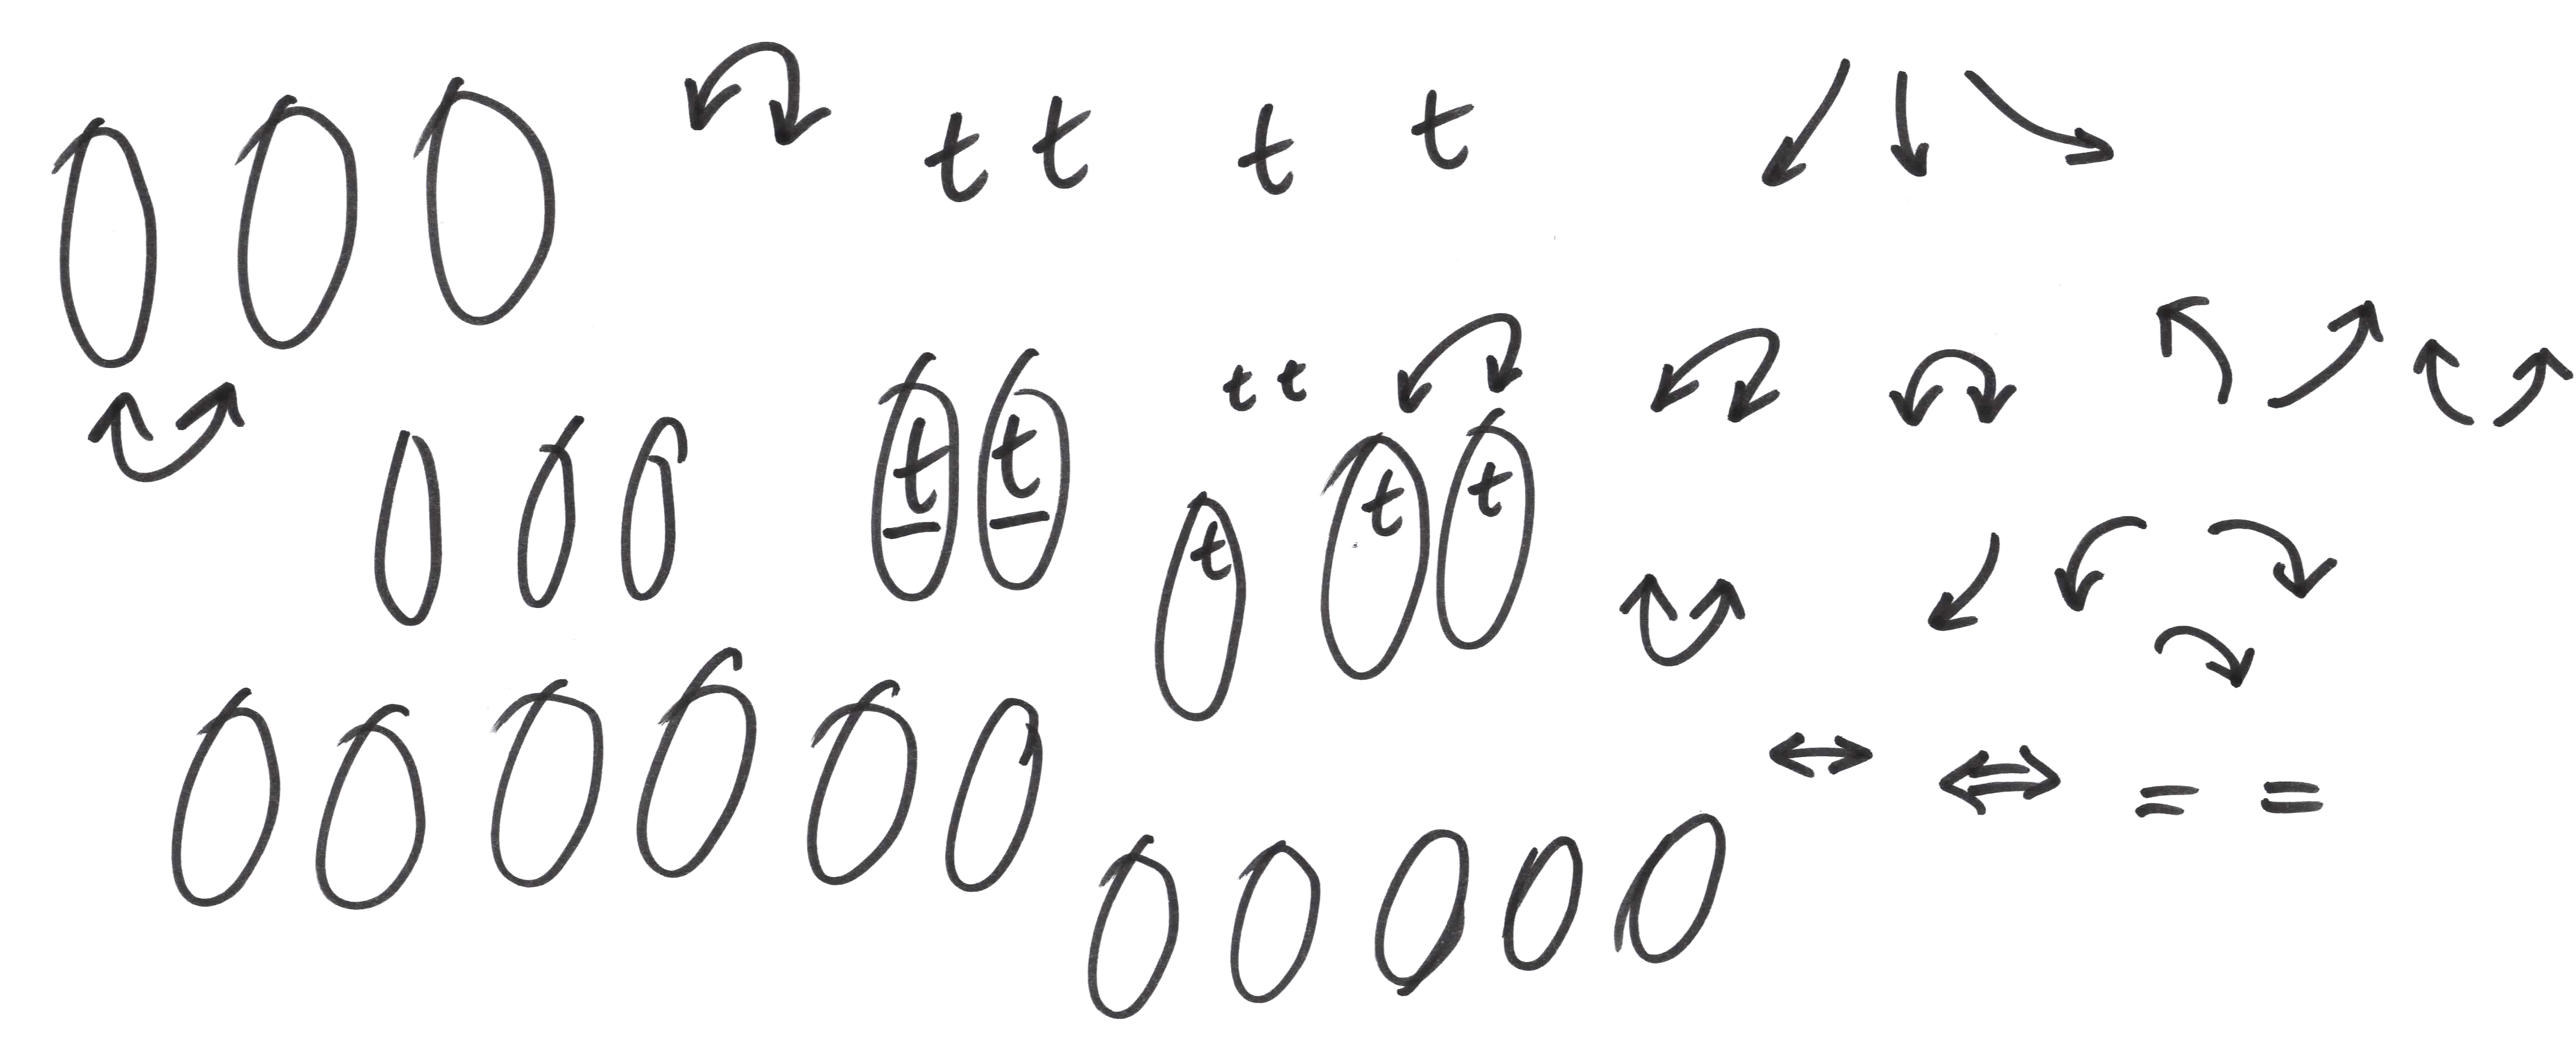 t t t t
t t
t t
t t t
= =